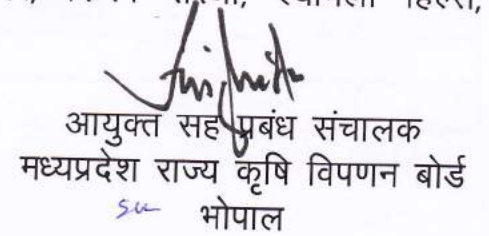 हिल्स,
आयुक्त सह प्रबंध संचालक
मध्यप्रदेश राज्य कृषि विपणन बोर्ड
भोपाल